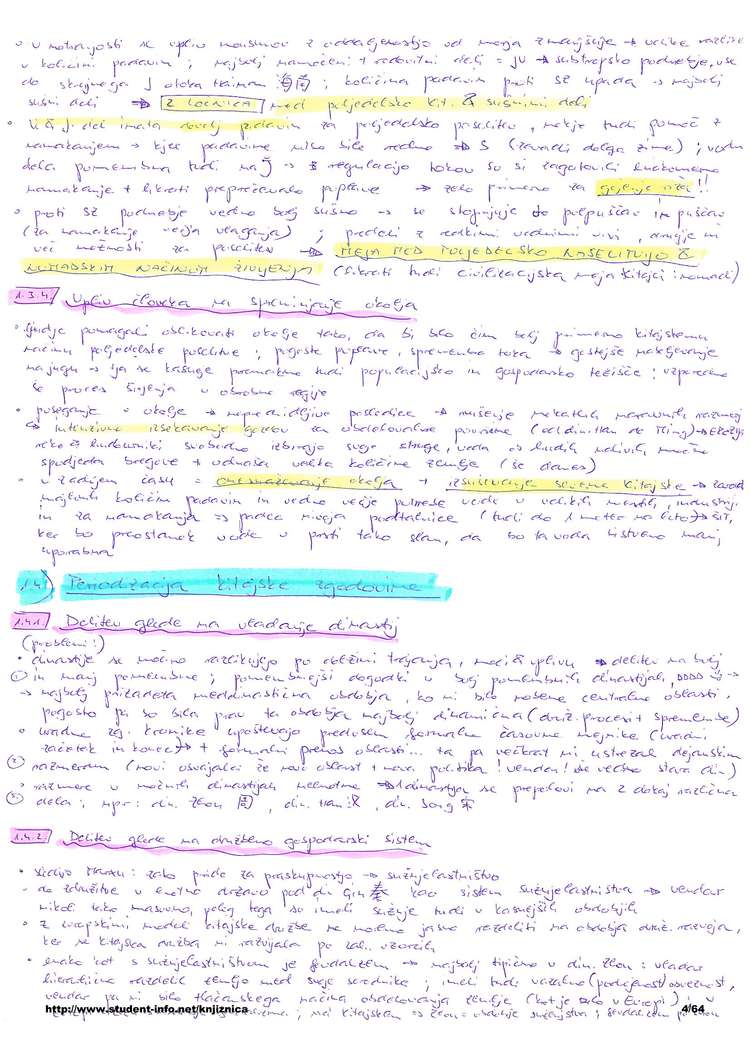 • v notranjosti se vpliv monsunov z oddaljenostjo od morja zmanjšuje → velike razlike
v količini padavin ; najbolj namočeni + redovitni deli = JV → subtropsko področje, vse
do skrajnega J otoka Hainan 海南 ; količina padavin proti SZ upada → najbolj
sušni deli ⇒ LOČNICA med poljedelsko Kit. & sušnimi deli
• V & J del imata dovolj padavin za poljedelsko poselitev, nekje tudi pomoč z
namakanjem → kjer padavine niso bile redne → S (zaradi dolge zime) ; vodna
dela pomembna tudi na J → z regulacijo tokov so si zagotovili enakomerno
namakanje + hkrati preprečevalo poplave → zelo primerno za gojenje riža!!
• proti SZ področje vedno bolj sušno → se stopnjuje do polpuščav in puščav
(za namakanje večja vlaganja) ; predeli z redkimi vodnimi viri, danes ni
več možnosti za poselitev → MEJA MED POLJEDELSKO NASELITVIJO &
NOMADSKIM NAČINOM ŽIVLJENJA (hkrati tudi civilizacijska meja Kitajci : nomadi)
1.3.4. Vpliv človeka na spreminjanje okolja
• ljudje pomagali oblikovati okolje tako, da bi bilo čim bolj primerno kitajskemu
načinu poljedelske poselitve ; pogoste poplave, sprememba toka → gostejše naseljevanje
na jugu → tja se kasneje premakne tudi populacijsko in gospodarsko težišče ; vzporedno
še proces širjenja v obrobne regije
• poseganje v okolje → nepredvidljive posledice → uničenje nekaterih naravnih
↳ intenzivno izsekavanje gozdov za obdelovalne površine (od din. Han do Ming) → EROZIJA
reke & hudourniki svobodno izbirajo svoje struge, voda
spodjeda bregove + odnaša velike količine zemlje (še danes)
• v zadnjem času = onesnaževanje okolja + izsuševanje severa Kitajske → zaradi
majhnih količin padavin in vedno večje porabe vode v velikih mestih, industriji
in za namakanje → padec nivoja podtalnice (tudi do 1 meter na leto)
ker bo preostanek vode v prsti tako slan, da bo ta voda bistveno manj
uporabna
1.4. Periodizacija kitajske zgodovine
1.4.1. Delitev glede na vladanje dinastij
(problemi:)
• dinastije se močno razlikujejo po obdobju trajanja, moči & vplivu → delitev na bolj
① in manj pomembne ; pomembnejši dogodki v bolj pomembnih dinastijah
→ najbolj prizadeta meddinastična obdobja, ko ni bilo nobene centralne oblasti,
pogosto pa so bila prav ta obdobja najbolj dinamična (druž. procesi + spremembe)
• uradne zg. kronike upoštevajo predvsem formalne časovne mejnike (uradni
začetek in konec) + formalni prenos oblasti... ta pa večkrat ni ustrezal dejanskim
② razmeram (novi osvajalci že novi oblast + nova politika ! vendar ! še vedno stara din.)
• razmere v močnih dinastijah neenotne → 1 dinastija se prepolovi na 2 dokaj različna
③ dela ; npr: din. Zhou 周, din. Han 汉, din. Song 宋
1.4.2. Delitev glede na družbeno gospodarski sistem
• sledijo Marxu : zato pride za praskupnostjo → sužnjelastništvo
• do združitve v enotno državo pod din. Qin 秦 kao sistem sužnjelastništva → vendar
nikoli tako masovno, poleg tega so imeli sužnje tudi v kasnejših obdobjih
• z evropskimi modeli kitajske družbe ne moremo jasno razdeliti na obdobja druž. razvoja,
ker se kitajska družba ni razvijala po zah. vzorcih
• enako kot s sužnjelastništvom je fevdalizem → najbolj tipično v din. Zhou : vladar
hierarhično razdelil zemljo med svoje sorodnike ; imeli tudi vazalno (podrejenost) obveznost,
vendar pa ni bilo tlačanskega načina obdelovanja zemlje (kot je bilo v Evropi) ; v
http://www.student-info.net/knjiznica 4/64